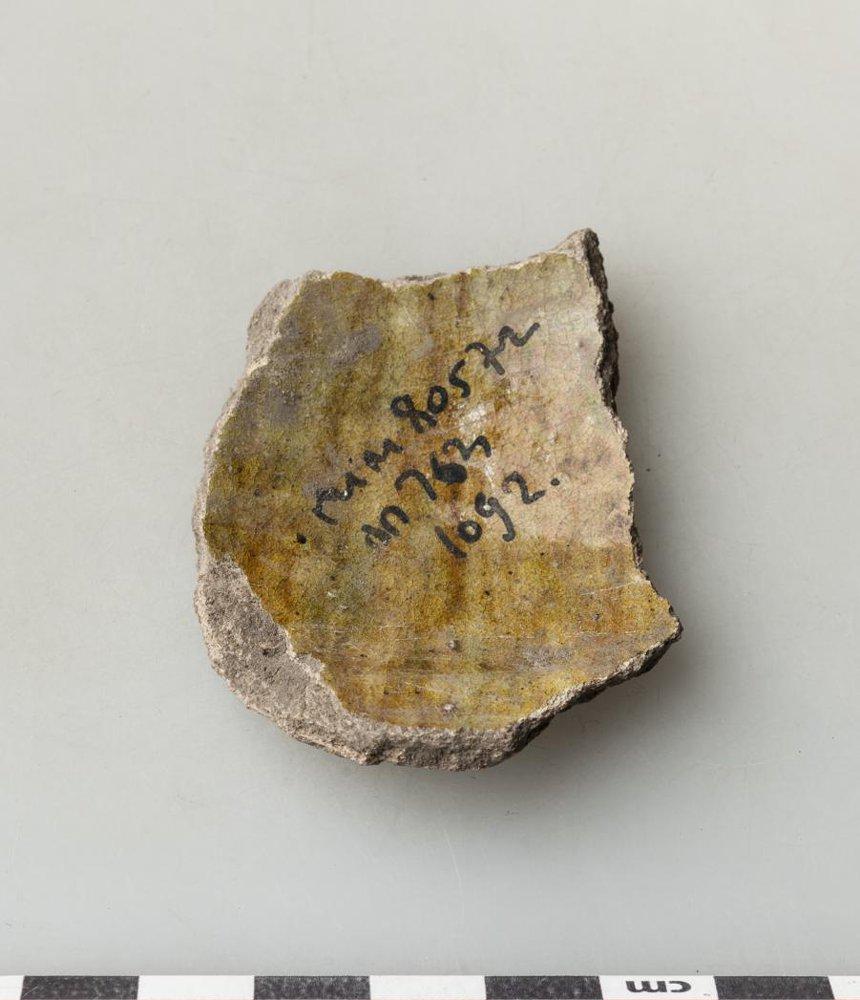 min 80572
m 763
1092.
cm